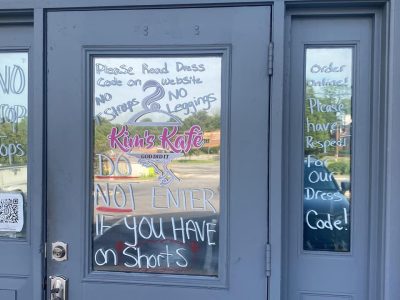 NO
TOPS
Please Read Dress
Code on Website
NO NO
T Straps Leggings
Kim's Kafe
GOD DID IT
DO
NOT ENTER
IF YOU HAVE
on Shorts
Order
Online!
Please
have
Respect
For
Our
Dress
Code!